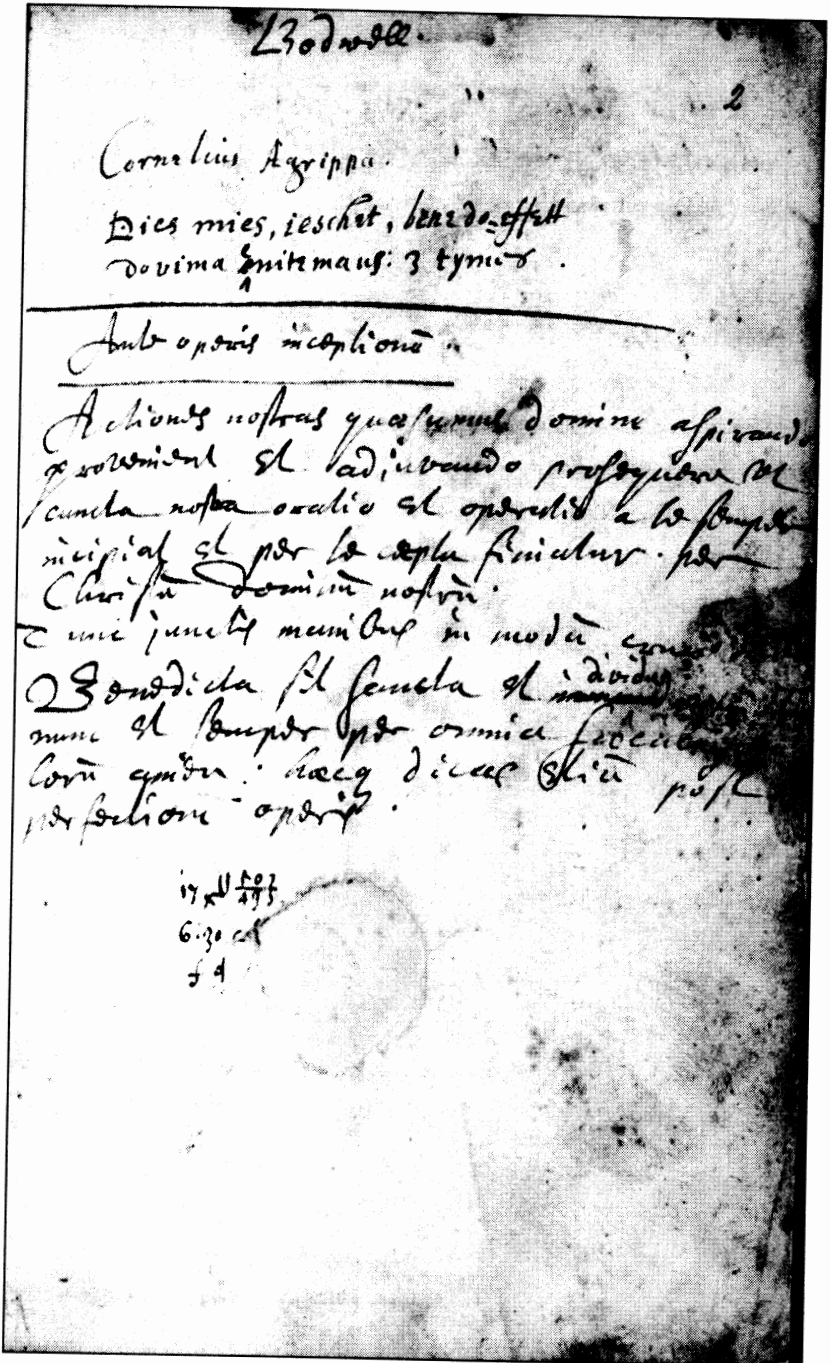 Bodwell.
2
Cornelius Agrippa.
Dies mies, ieschet, benedo=effett
dovima Enitemaus: 3 tymes.
Ante operis inceptionē
Actiones nostras quæsumus domine aspirando
provenient et adiuvando prosequere ut
cuncta nostra oratio et operatio a te semper
incipiat et per te cæpta finiatur. per
Christū dominū nostrū.
Tunc junctis manibus in modū
Benedicta sit sancta et dividua
nunc et semper per omnia
lorū amen: hæcq dicas etiā post
perfectionē operis.
17
6.30